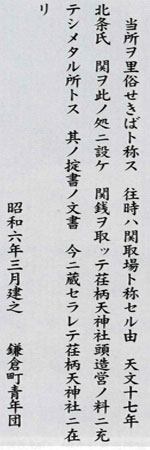 当所ヲ里俗せきばト称ス　往時ハ関取場ト称セル由　天文十七年
北条氏　関ヲ此ノ処ニ設ケ　関銭ヲ取ッテ荏柄天神社頭造営ノ料ニ充
テシメタル所トス　其ノ掟書ノ文書　今ニ蔵セラレテ荏柄天神社ニ在
リ
昭和六年三月建之　鎌倉町青年団